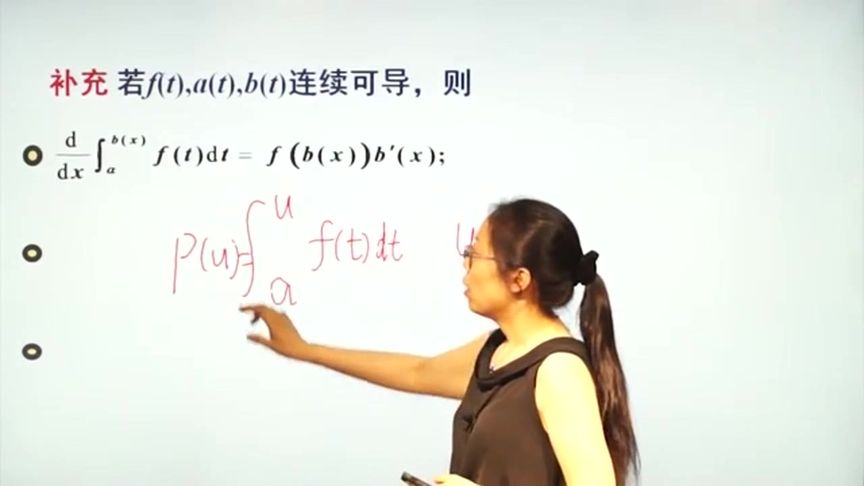 补充 若f(t),a(t),b(t)连续可导，则
d/dx ∫_a^{b(x)} f(t)dt = f(b(x))b′(x);
P(u)=∫_a^u f(t)dt u